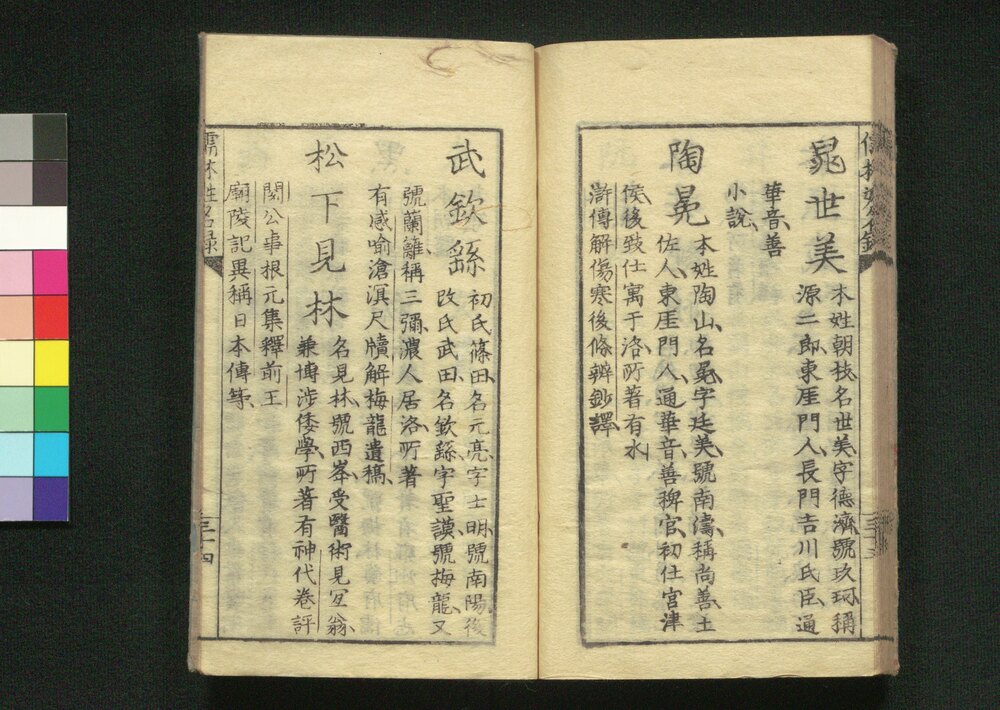 晁世美
本姓朝枝名世美字德濟號玖珂稱
源二郎東厓門人長門吉川氏臣通
華音善
小說
陶冕
本姓陶山名冕字廷美號南濤稱尚善土
佐人東厓門人通華音善稗官初仕宮津
侯後致仕寓于洛所著有水
滸傳解傷寒後條辨鈔譯
武欽繇
初氏篠田名元亮字士明號南陽後
改氏武田名欽繇字聖謨號梅龍又
號蘭籬稱三彌濃人居洛所著
有感喻滄溟尺牘解梅龍遺稿
松下見林
名見林號西峯受醫術見宜翁
兼博涉倭學所著有神代卷評
閱公事根元集釋前王
廟陵記異稱日本傳等
儒林姓名錄
三十四